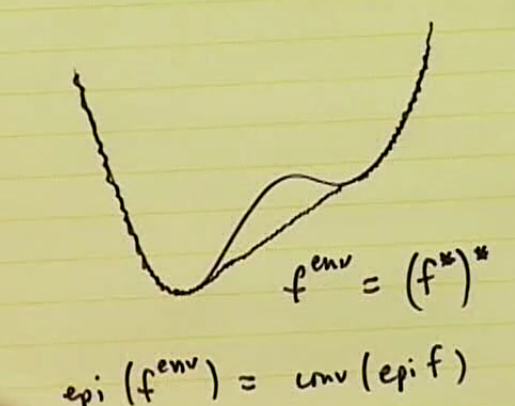 f^env = (f*)*
epi (f^env) = conv (epi f)